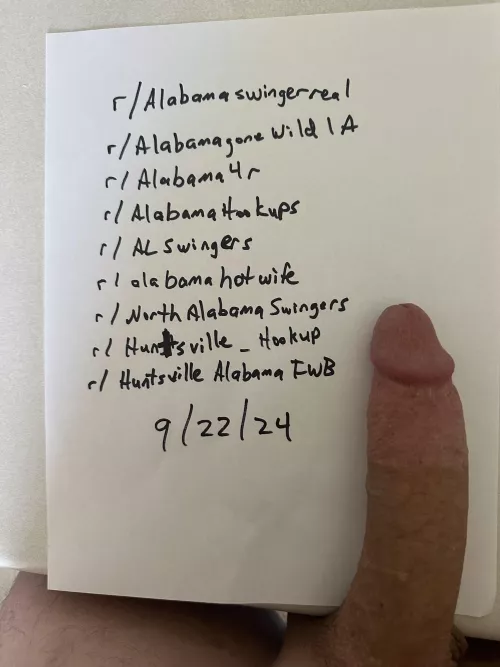 r/Alabamaswingerreal
r/Alabamagonewild1A
r/Alabama4r
r/AlabamaHookups
r/ALswingers
r/alabamahotwife
r/NorthAlabamaSwingers
r/Huntsville_Hookup
r/Huntsville Alabama FWB
9/22/24